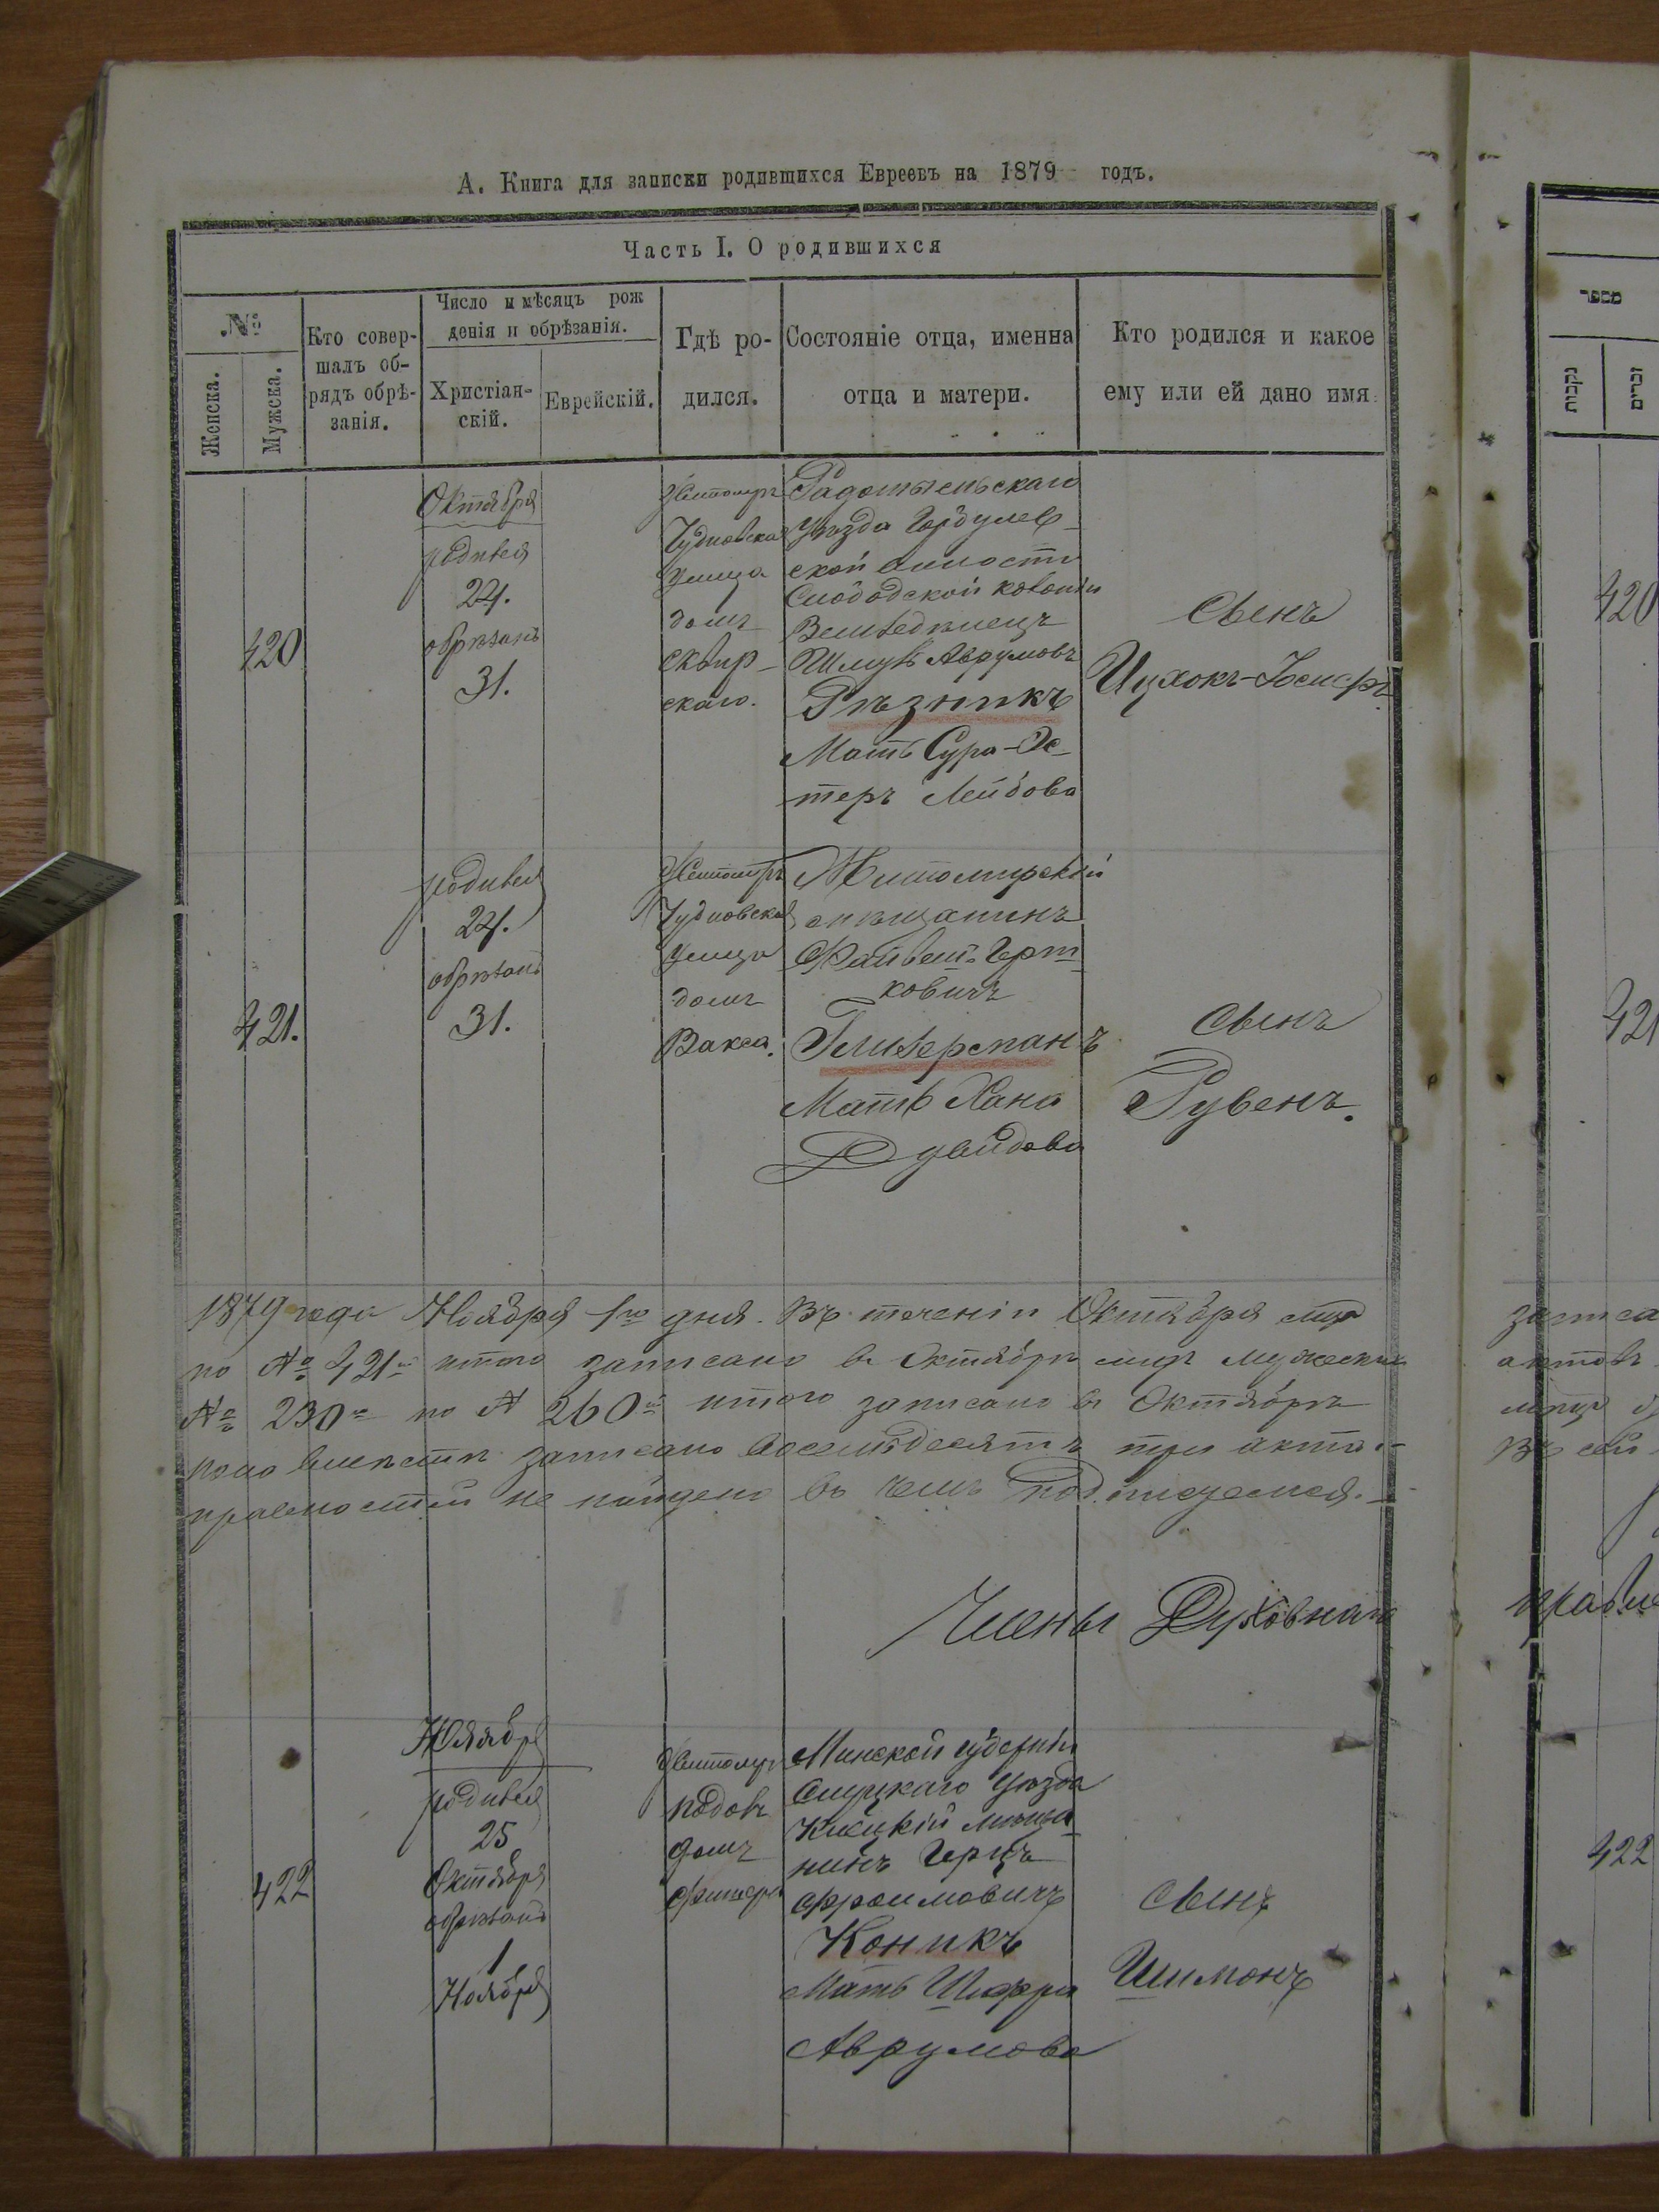 А. Книга для записки родившихся Евреевъ на 1879 годъ.
Часть I. О родившихся
№
Женска.
Мужска.
Кто совер-
шалъ об-
рядъ обрѣ-
занія.
Число и мѣсяцъ рож
денія и обрѣзанія.
Христіан-
скій.
Еврейскій.
Гдѣ ро-
дился.
Состояніе отца, именна
отца и матери.
Кто родился и какое
ему или ей дано имя.
420
Октября
родився
24.
обрѣзанъ
31.
Житомиръ
Чудновская
улица
домъ
Сквир-
скаго.
Радомысльскаго
Уѣзда
ской волости
Слободской колоніи
Шмуль Аврумовъ
Рѣзникъ
Мать Сура-Эс-
теръ Лейбова
Сынъ
Ицхокъ-
421.
родився
24.
обрѣзанъ
31.
Житомиръ
Чудновская
улица
домъ
Вакса.
Житомирскій
мѣщанинъ
Файвель Герш-
ковичъ
Гльзерманъ
Мать Хана
Дувидова
Сынъ
Рувенъ.
1879 года Ноября 1го дня. Въ теченіи Октября мца
по № 421й итого записано въ Октябрѣ мцѣ мужескихъ
№ 230го по № 260й итого записано въ Октябрѣ
вмѣстѣ записано восемьдесятъ три акта
правностей не найдено въ чемъ подписуемся.
Члены Духовнаго
422
Ноября
родився
25
Октября
обрѣзанъ
1
Ноября
Житомиръ
домъ
Фишера
Минской губерніи
Слуцкаго Уѣзда
Клецкій мѣща-
нинъ Герцъ
Фроимовичъ
Коникъ
Мать Шифра
Аврумова
Сынъ
Шимонъ
מספר
נקבות
זכרים
420
421
записа
актовъ
мѣсца
Въ сей
правле
422